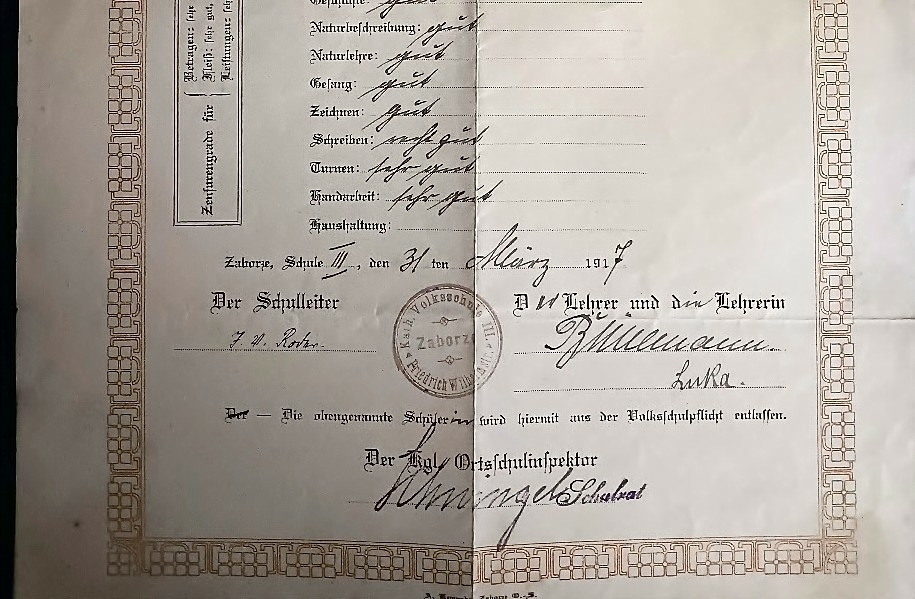 Zensurengrade für
Betragen: sehr
Fleiß: sehr gut,
Leistungen: sehr
Geschichte: gut
Naturbeschreibung: gut
Naturlehre: gut
Gesang: gut
Zeichnen: gut
Schreiben: recht gut
Turnen: sehr gut
Handarbeit: sehr gut
Haushaltung:
Zaborze, Schule III, den 31 ten März 1917
Der Schulleiter
Der Lehrer und die Lehrerin
J. V. Roder.
Kath. Volksschule III.
Zaborze
Luka.
Der — Die obengenannte Schülerin wird hiermit aus der Volksschulpflicht entlassen.
Der Kgl. Ortsschulinspektor
Schulrat
Zaborze O.-S.